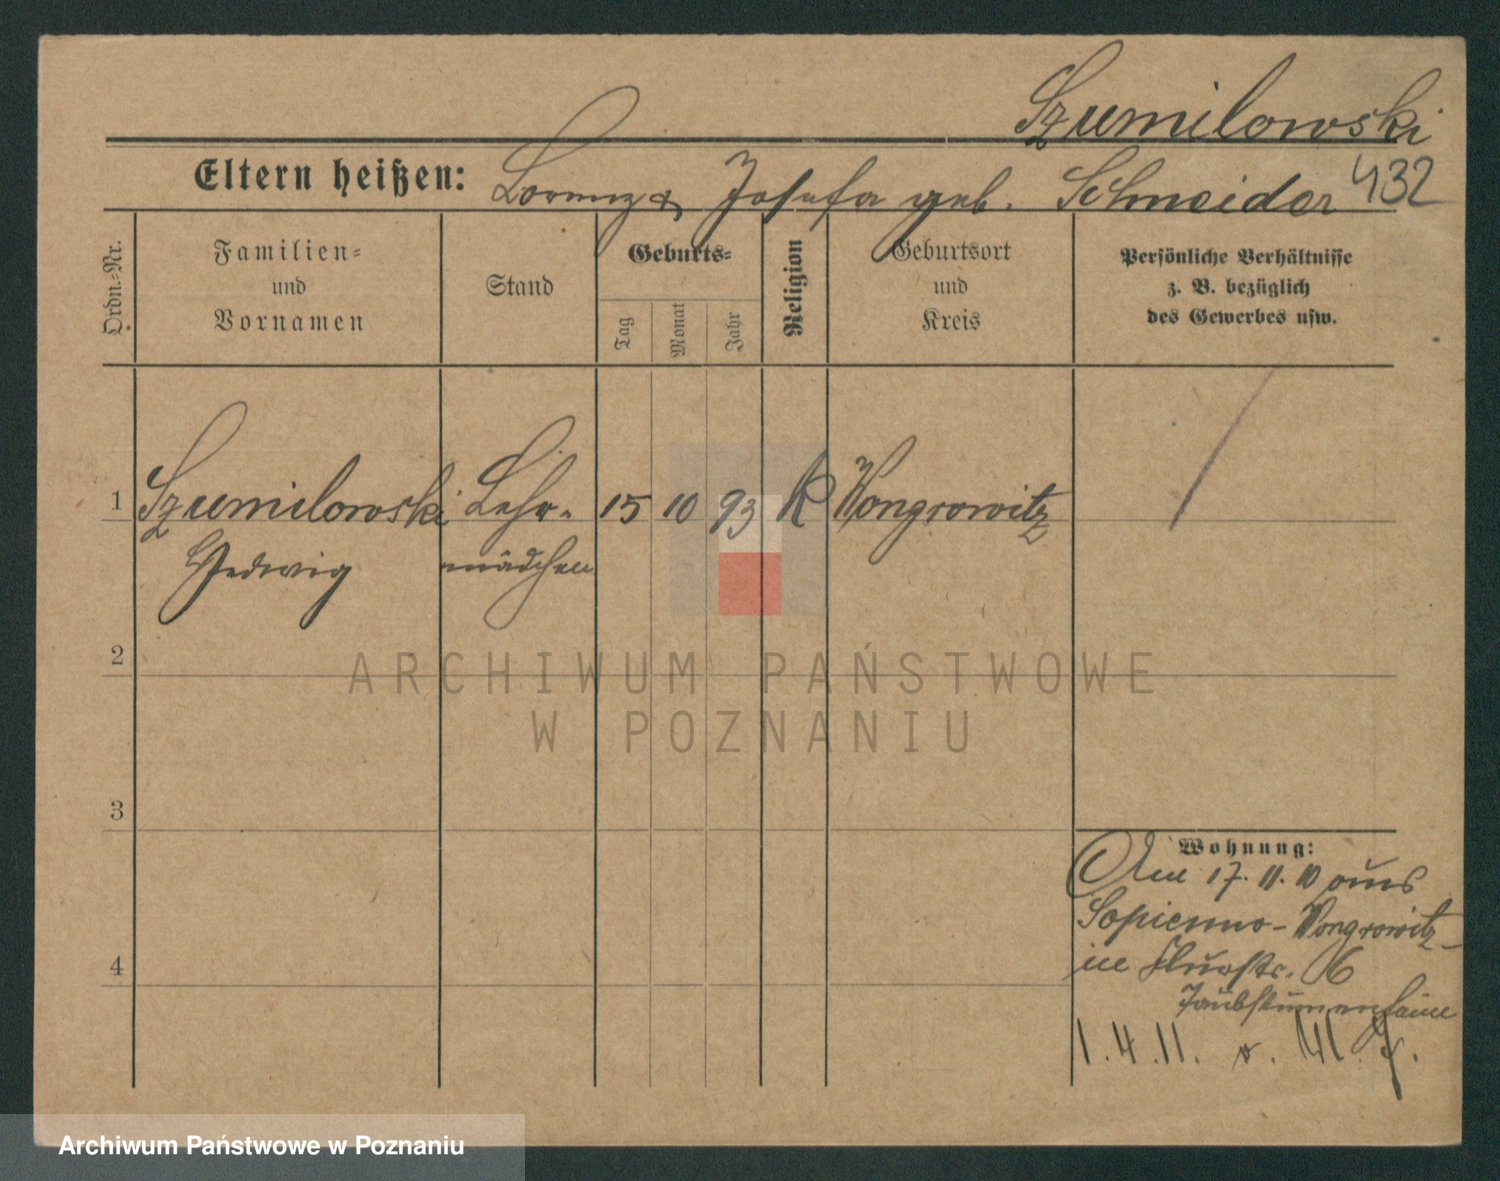 Szumilowski
Eltern heißen: Lorenz & Josefa geb. Schneider 432
Ordn.-Nr.
Familien-
und
Vornamen
Stand
Geburts-
Tag
Monat
Jahr
Religion
Geburtsort
und
Kreis
Persönliche Verhältnisse
z. B. bezüglich
des Gewerbes usw.
1 Szumilowski Lehr- 15 10 93 K Wongrowitz
Hedwig mädchen
2
3
4
Wohnung:
Am 17. 11. 10 aus
Sopienno - Wongrowitz
in 6
Taubstummenheim
1. 4. 11.
ARCHIWUM PAŃSTWOWE
W POZNANIU
Archiwum Państwowe w Poznaniu